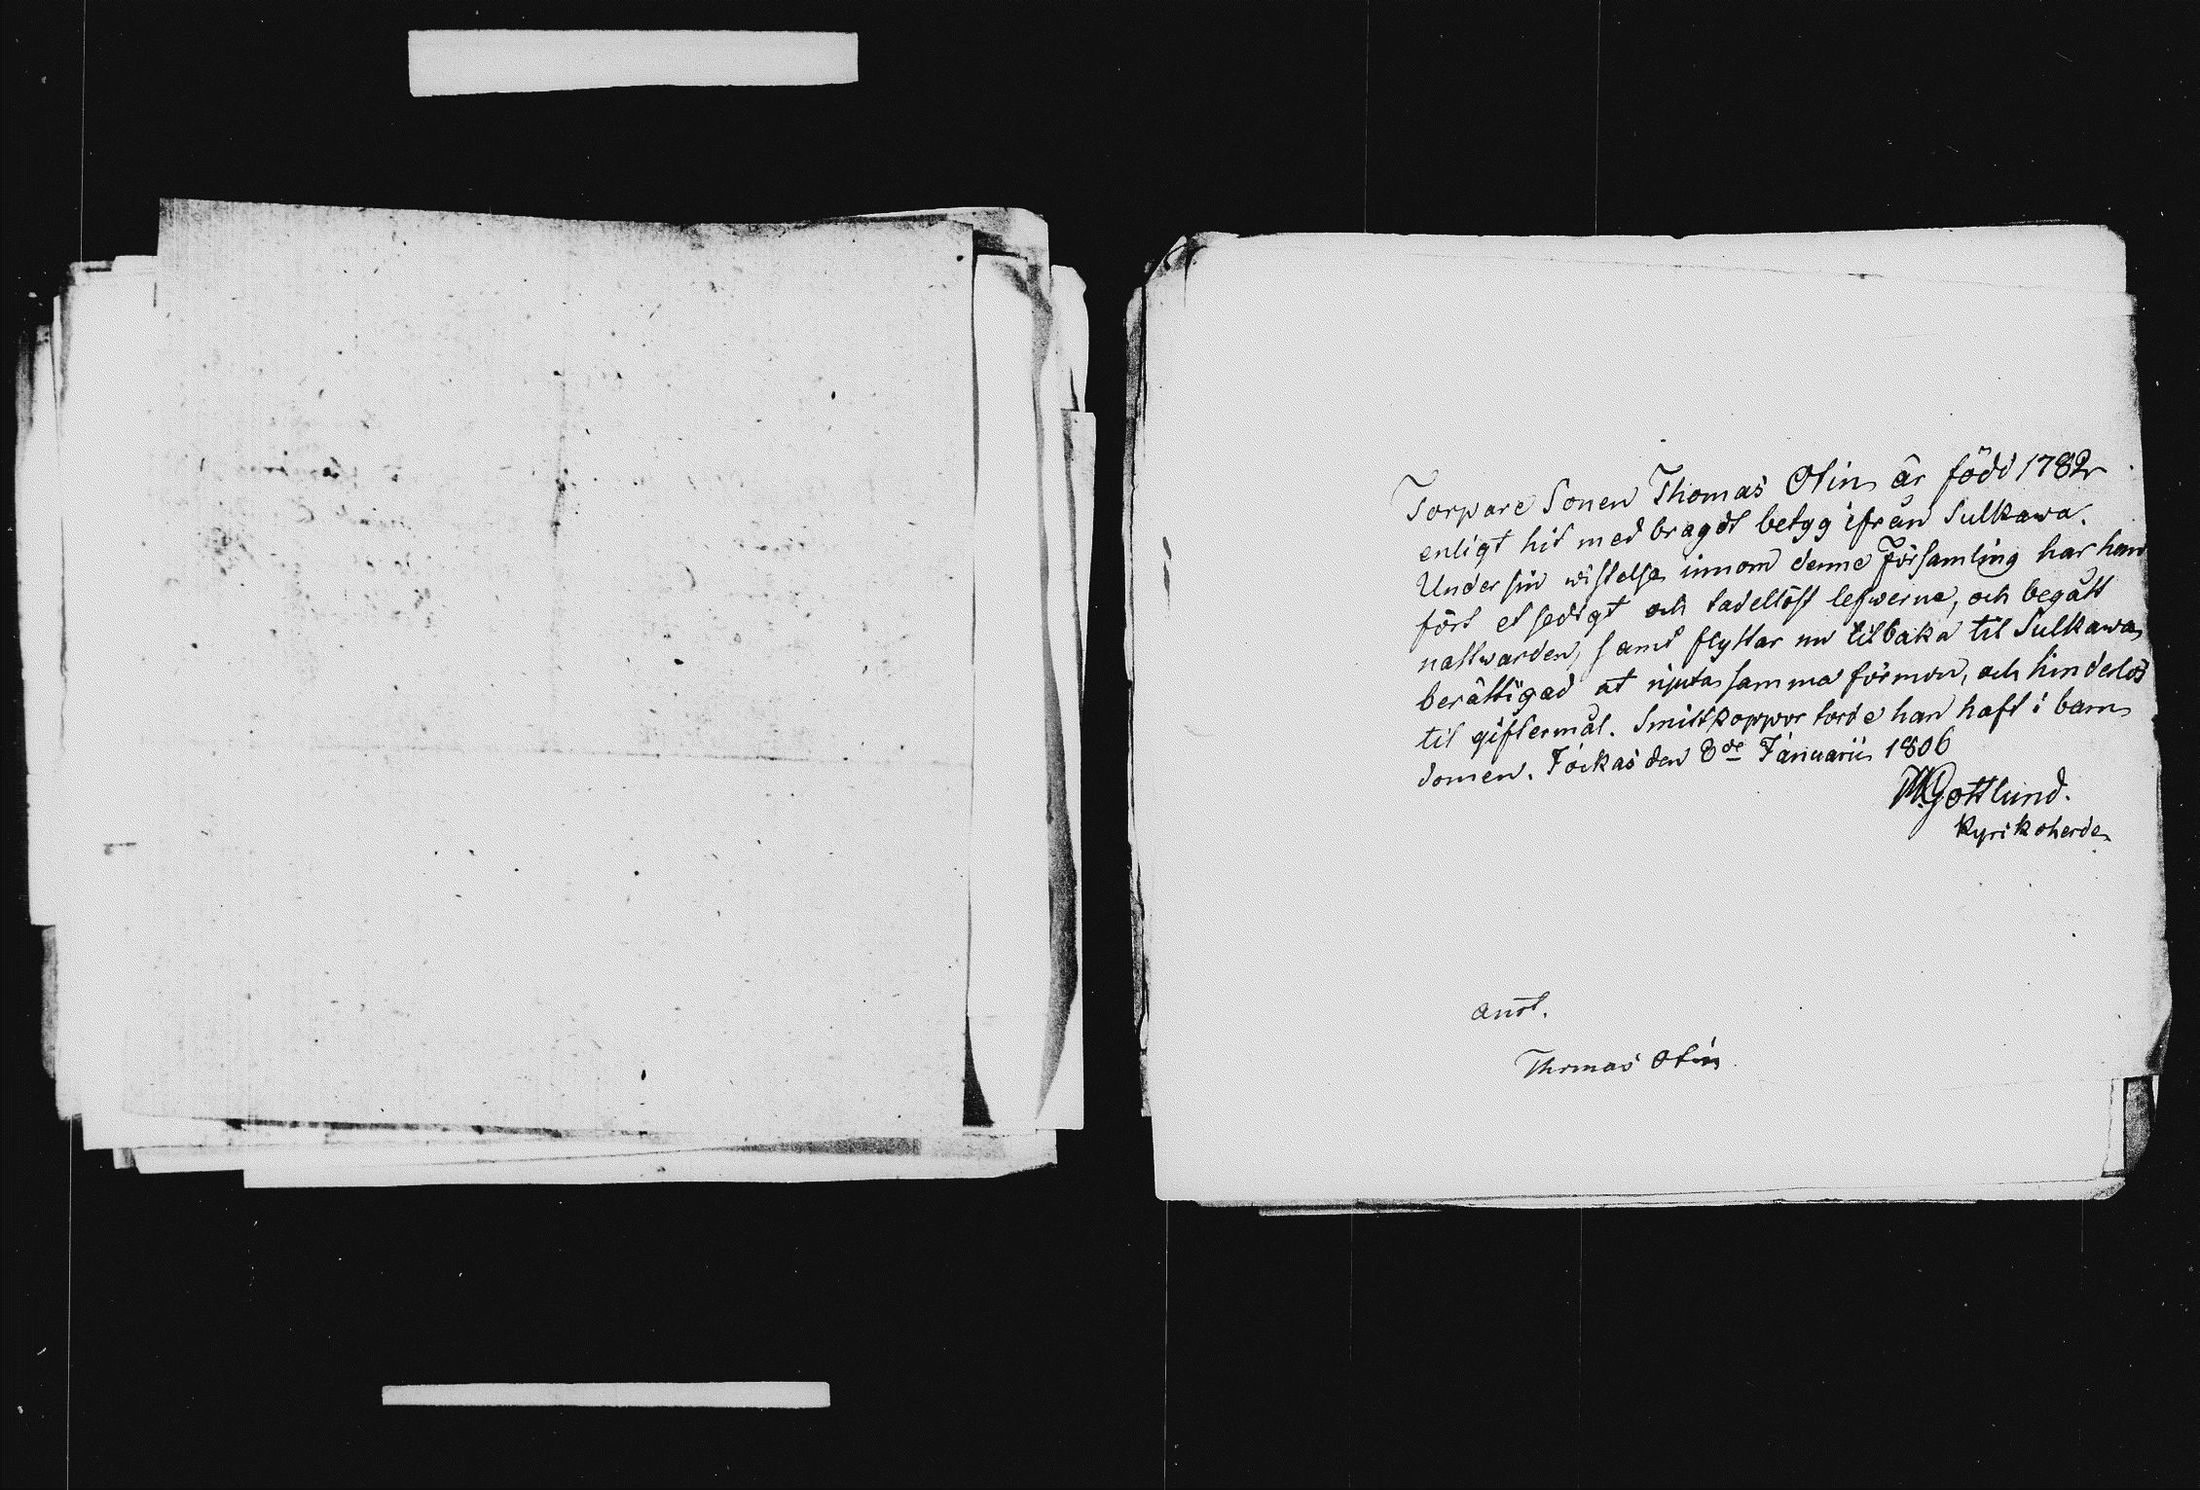 Torpare Sonen Thomas Otin är född 1782
enligt hit med bragdt betyg ifrån Sulkawa.
Under sin wistelse innom denne Församling har han
fört et sedigt och tadellöst lefwerne, och begått
nattwarden, samt flyttar nu tilbaka til Sulkawa,
berättigad at njuta samma förmon, och hinderlös
til giftermål. Smittkoppor torde han haft i barn
domen. Jockas den 8de Januarii 1806
M. Gottlund.
Kyrikoherde
anot.
Thomas Otin